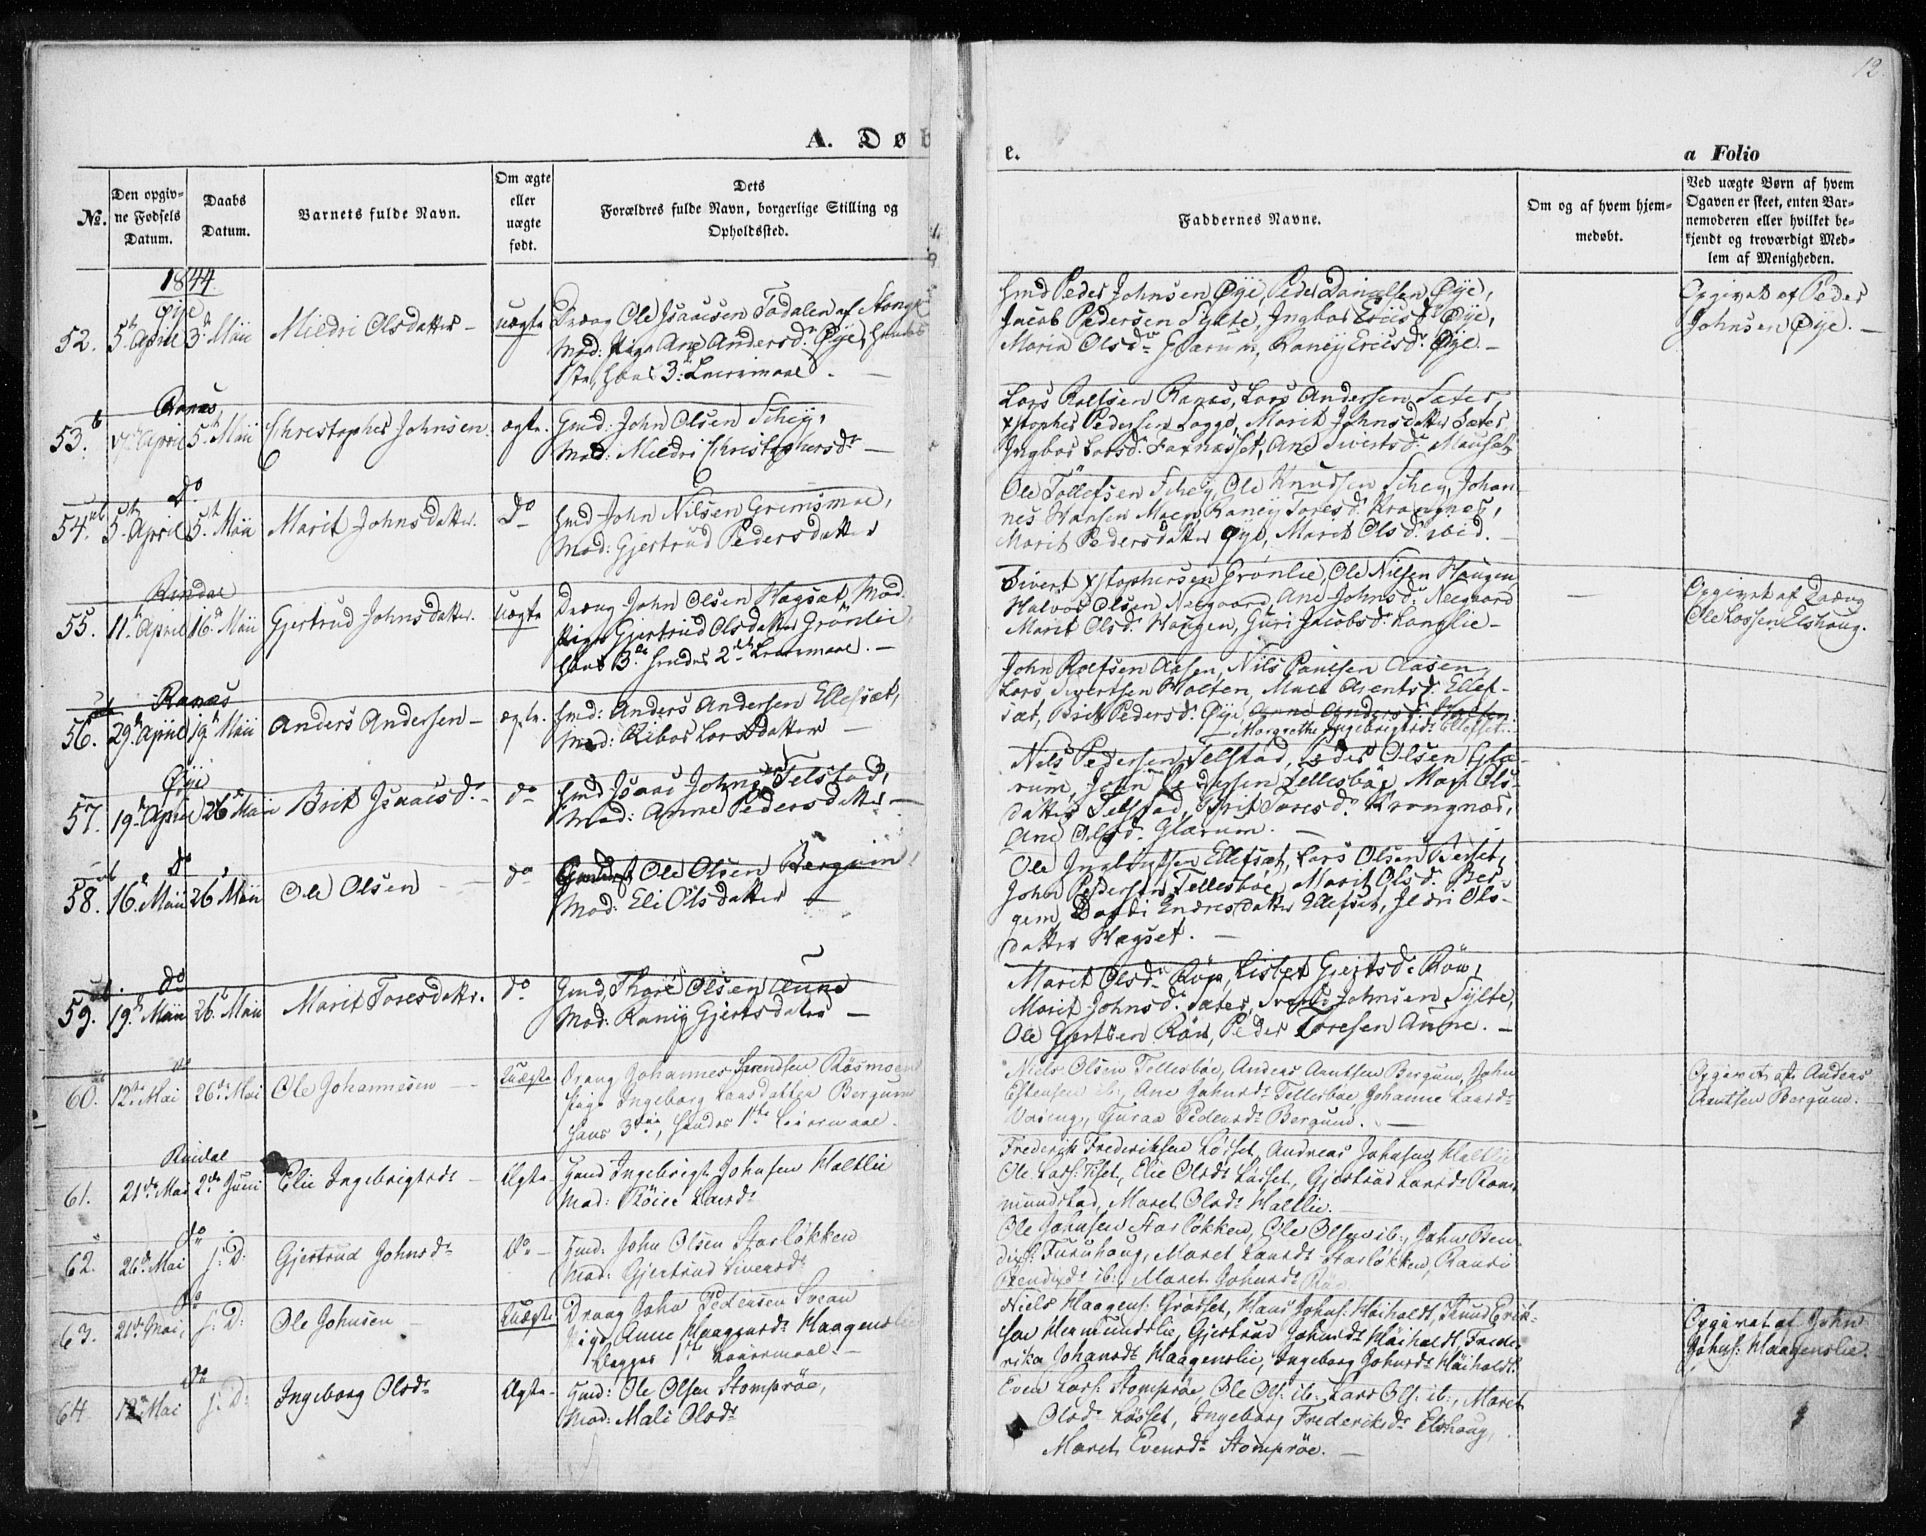 12
A. Døb
e.
a Folio
No.
Den opgiv-
ne Fødsels
Datum.
Daabs
Datum.
Barnets fulde Navn.
Om ægte
eller
uægte
født.
Dets
Forældres fulde Navn, borgerlige Stilling og
Opholdssted.
Faddernes Navne.
Om og af hvem hjem-
medøbt.
Ved uægte Børn af hvem
Ogaven er skeet, enten Bar-
nemoderen eller hvilket be-
kjendt og troværdigt Med-
lem af Menigheden.
1844
Øye
52. 5. April 3. Maii Mildri Olsdatter – uægte
Dreng Ole Isaacsen Todalen af
Mod: Pige Ane Andersd: Øye,
3: Leiermaal. –
Gmd Peder Johnsen Øye, Peder Danielsen Øye,
Jacob Pedersen Sylte, Ingbor Ericsd: Øye,
Maria Olsd: Glarum, Raney Ericsd: Øye. –
Opgivet af Peder
Johnsen Øye. –
Ranæs
53. April 5. Maii Christopher Johnsen ægte.
Gmd: John Olsen Schey,
Mod: Mildri Christophersd: –
Lars Rolfsen Ranæs, Lars Andersen Sæter,
Xstopher Pedersen, Marit Johnsdatter Sæter,
Ingbor Larsd:, Ane Sivertsd:
Do
54. 5. April 5. Maii Marit Johnsdatter. Do
Gmd John Nilsen Grimsmoe,
Mod: Gjertrud Pedersdatter
Ole Tollefsen Schey, Ole Knudsen Schey, Johan-
nes Hansen Moen, Raney Toresd: Krangnæs,
Marit Pedersdatter Øye, Marit Olsd: ibid. –
Rindal
55. 11. April 16. Maii Gjertrud Johnsdatter. Uægte
Dreng John Olsen Hagsæt, Mod:
Pige Gjertrud Olsdatter Grønlie,
hans 3. hendes 2. Leiermaal. –
Sivert Xstophersen Grønlie, Ole Nilsen Haugen,
Halvor Olsen Neegaard, Ane Johnsd: Neegaard
Marit Olsd: Haugen, Guri Jacobsd: Langlie –
Opgivet af Dreng
Ole Larsen Elshaug.
Ranæs
56. 29. April 19. Maii Anders Andersen – ægte.
Gmd: Anders Andersen Ellefsæt,
Mod: Larsdatter –
John Rolfsen Aasen, Nils Paulsen Aasen,
Lars Sivertsen Holten, Arentsd: Ellef-
sæt, Brit Pedersd: Øye, Anne Andersd: Holten
Margrethe Ingebrigtsd: Ellefset.
Øye
57. 19. April 26. Maii Brit Isaacsd: – do
Gmd Isaac Johnsen Telstad,
Mod: Anne Pedersdatter –
Nils Pedersen Telstad, Peder Olsen Gla-
rum, John Pedersen Tellesbøe, Ols-
datter Telstad, Brit Toresd: Krangnæs,
Ane Olsd: Glarum. –
Do
58. 16. Maii 26. Maii Ole Olsen – do
Ole Olsen Bergem,
Mod: Eli Olsdatter –
Ole Ingebrigtsen Ellefsæt, Lars Olsen Berset,
John Pedersen Tellesbøe, Marit Olsd: Ber-
gem, Dordi Endresdatter Ellefset, Ols-
datter Hægset. –
do
59. 19. Maii 26. Maii Marit Toresdatr. do
Gmd Thore Olsen Aune
Mod: Ranig Gjertsdatter –
Marit Olsd: Røen, Lisbet Gjertsd: Røen,
Marit Johnsd: Sæter, Johnsen Sylte,
Ole Gjertsen Røen, Peder Toresen Aune. –
do
60. 12te Mai 26de Mai Ole Johannesen – Uægte
Dreng Johannes Svendsen Røsmoen
Pige Ingeborg Larsdatter Bergum
hans 3die, hendes 1ste Leiermaal.
Niels Olsen Tellesbøe, Anders Arntsen Bergum, John
Estensen ib:, Ane Johnsdr Tellesbøe, Johanne Larsdr
, Guraa Pedersdr Bergum. –
Opgivet af Anders
Arntsen Bergum.
Rindal
61. 21de Mai 2den Juni Elie Ingebrigtsdr – Ægte
Gmd Ingebrigt Johnsen Haltlie
Mod: Larsdr
Frederik Frederiksen Løsset, Andreas Johnsen Haltlie
Ole Lars: Tiset, Elie Olsdr Løsset, Gjertrud Larsdr Rom-
mundstad, Maret Olsdr Haltlie. –
do
62. 26de Mai s: D: Gjertrud Johnsdr Do –
Gmd: John Olsen Starløkken
Mod: Gjertrud Siversdr
Ole Johnsen Starløkken, Ole Olsen ib:, John Ben-
dixs: Furuhaug, Maret Larsdr Starløkken, Randi
Bendixdr ib:, Maret Johnsdr
do
63. 21de Mai, s: D: Ole Johnsen – Uægte
Dreng John Pedersen Svean
Pige Anne Haagensdr Haagenslie
Begges 1ste Leiermaal. –
Niels Haagens: Grøsset, Hans Johns: Haiholdt, Knud Erik-
sen Hermundslie, Gjertrud Johnsdr Haiholdt, Frede-
rika Johansdr Haagenslie, Ingeborg Johnsdr Haiholdt.
Opgivet af John
Johns: Haagenslie.
do
64 12 Mai s: D: Ingeborg Olsdr Ægte.
Gmd: Ole Olsen Stomprøe,
Mod: Mali Olsdr
Even Lars: Stomprøe, Ole Ols: ib:, Lars Ols: ib:, Maret
Olsd Løsset, Ingeborg Frederiksdr Elshaug,
Maret Evensdr Stomprøe. –